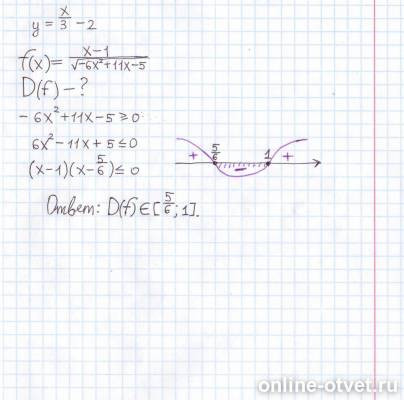 y = x/3 - 2
f(x) = (x-1)/√(-6x²+11x-5)
D(f) - ?
-6x²+11x-5 ≥ 0
6x²-11x+5 ≤ 0
(x-1)(x-5/6) ≤ 0
+ 5/6 - 1 +
Ответ: D(f) ∈ [5/6; 1].
online-otvet.ru